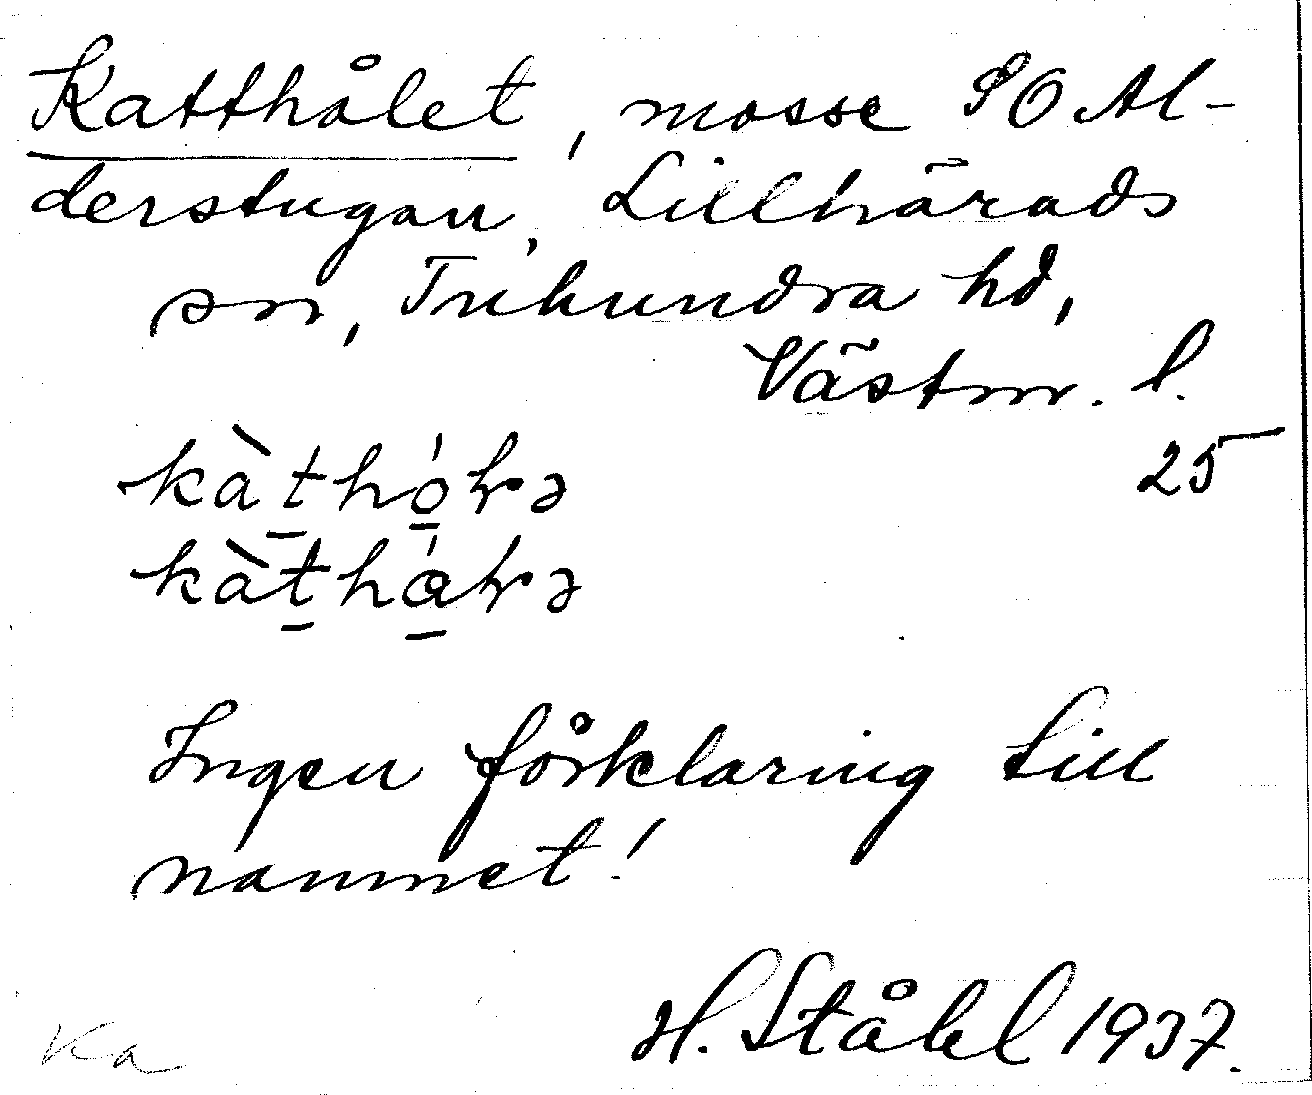 Katthålet, mosse SO Al-
derstugan, Lillhärads
sn, Tuhundra hd,
Västm. l.
25
kàthó̱ƚə
kàthá̱ƚə
Ingen förklaring till
namnet!
H. Ståhl 1937.
Ka